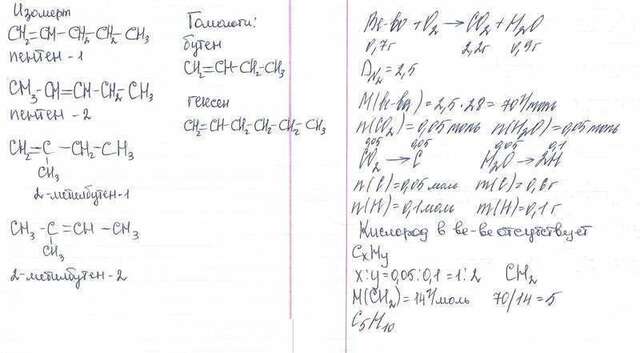 Изомеры
CH₂=CH-CH₂-CH₂-CH₃
пентен-1
CH₃-CH=CH-CH₂-CH₃
пентен-2
CH₂=C-CH₂-CH₃
CH₃
2-метилбутен-1
CH₃-C=CH-CH₃
CH₃
2-метилбутен-2
Гомологи:
бутен
CH₂=CH-CH₂-CH₃
гексен
CH₂=CH-CH₂-CH₂-CH₂-CH₃
Ве-во + O₂ → CO₂ + H₂O
0,7г 2,2г 0,9г
D_N₂ = 2,5
M(в-ва) = 2,5·28 = 70 г/моль
n(CO₂) = 0,05 моль n(H₂O) = 0,05 моль
0,05 0,05 0,05 0,1
CO₂ → C H₂O → 2H
n(C) = 0,05 моль m(C) = 0,6г
n(H) = 0,1 моль m(H) = 0,1г
Кислород в ве-ве отсутствует
CxHy
x:y = 0,05:0,1 = 1:2 CH₂
M(CH₂) = 14 г/моль 70/14 = 5
C₅H₁₀